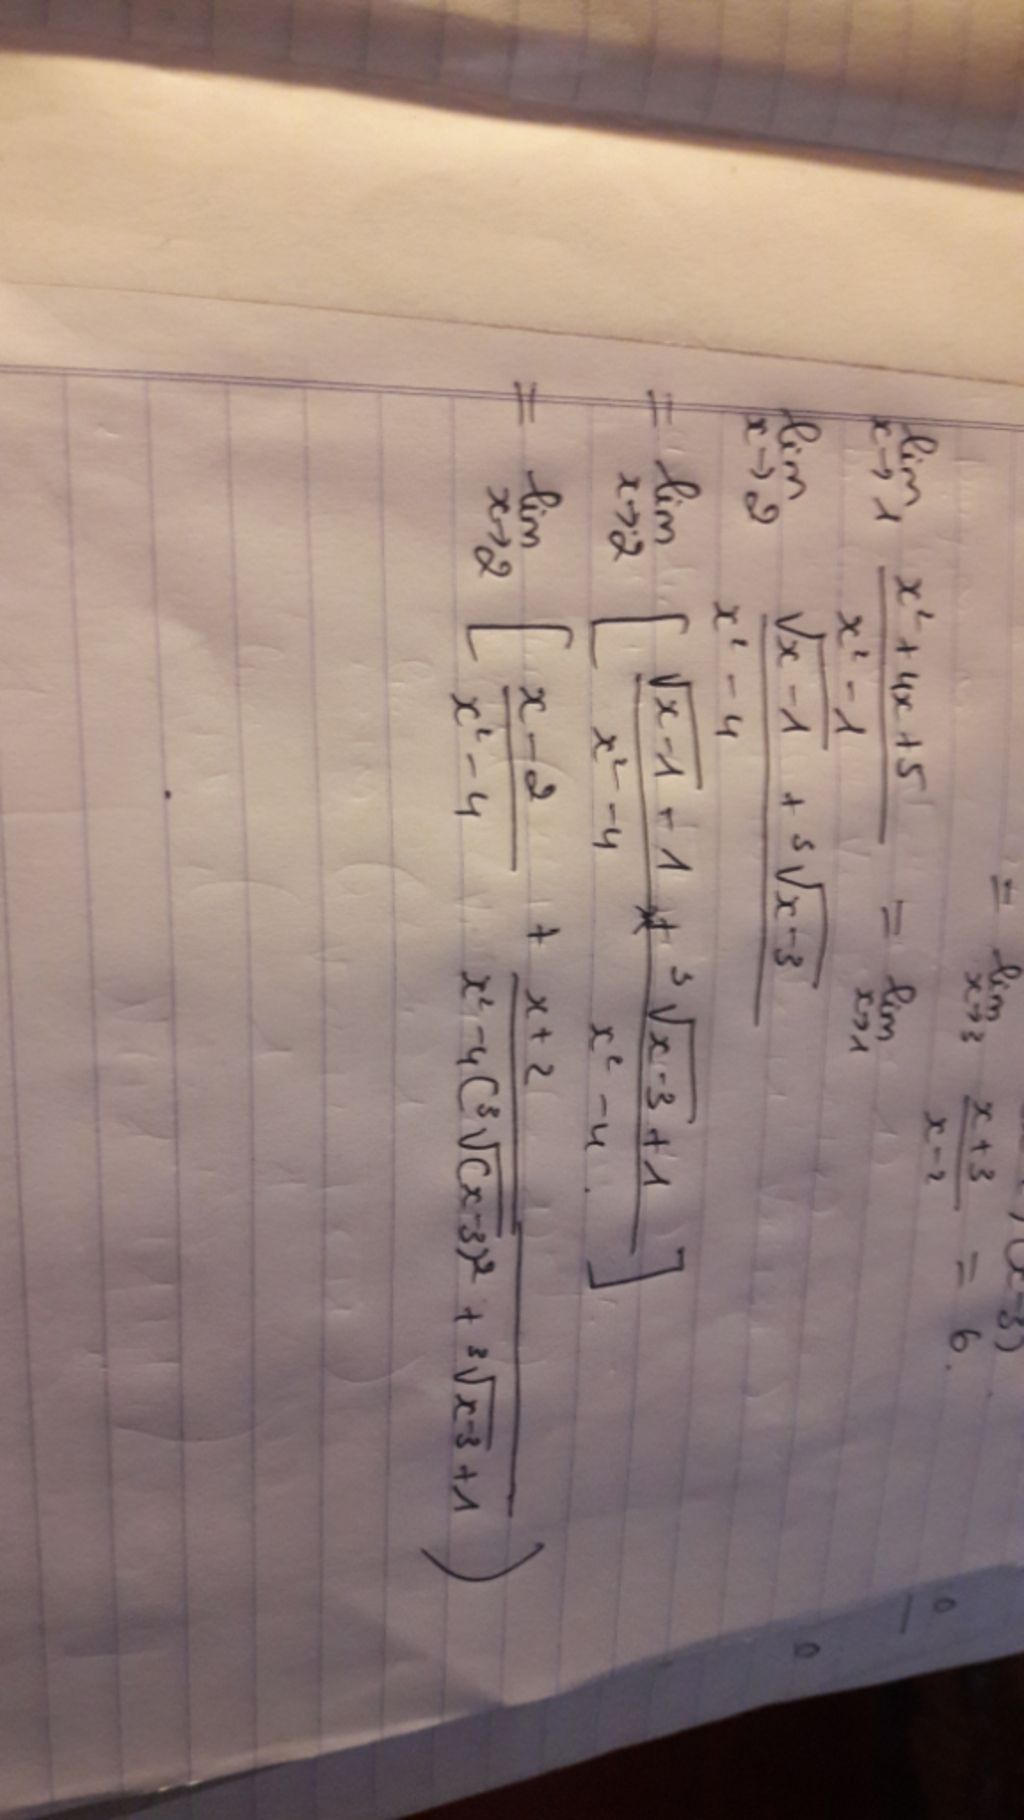 (x-3)
= lim x→3 x+3 / x-2 = 6.
lim x→1 x² + 4x + 5 / x² - 1 = lim x→1
lim x→2 √x-1 + ³√x-3 / x² - 4
= lim x→2 [ √x-1 - 1 / x² - 4 + ³√x-3 + 1 / x² - 4 ]
= lim x→2 [ x-2 / x² - 4 + x+2 / x² - 4(³√(x-3)² + ³√x-3 + 1 )